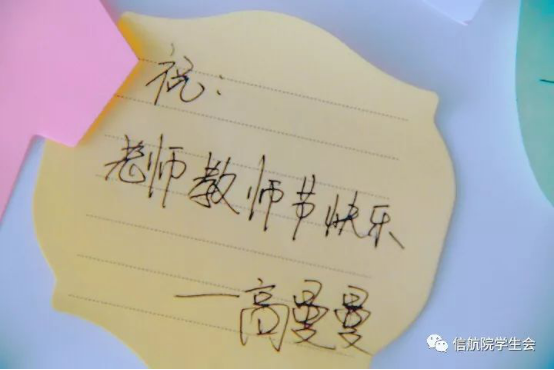 祝：
老师教师节快乐
—高曼曼
信航院学生会